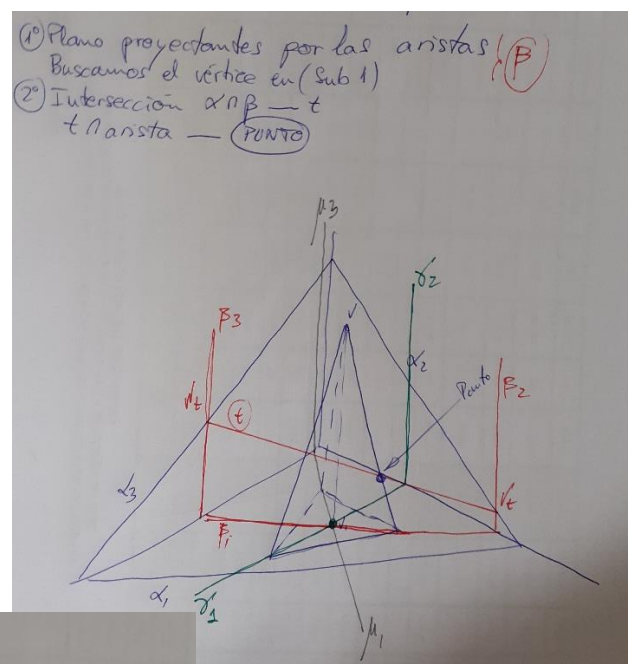 1º Plano proyectantes por las aristas β
Buscamos el vértice en (Sub 1)
2º Intersección α∩β — t
t∩arista — PUNTO
μ3
γ2
V
β3
α2
Punto
β2
Vt
t
Vt
α3
β1
α1
γ1
μ1